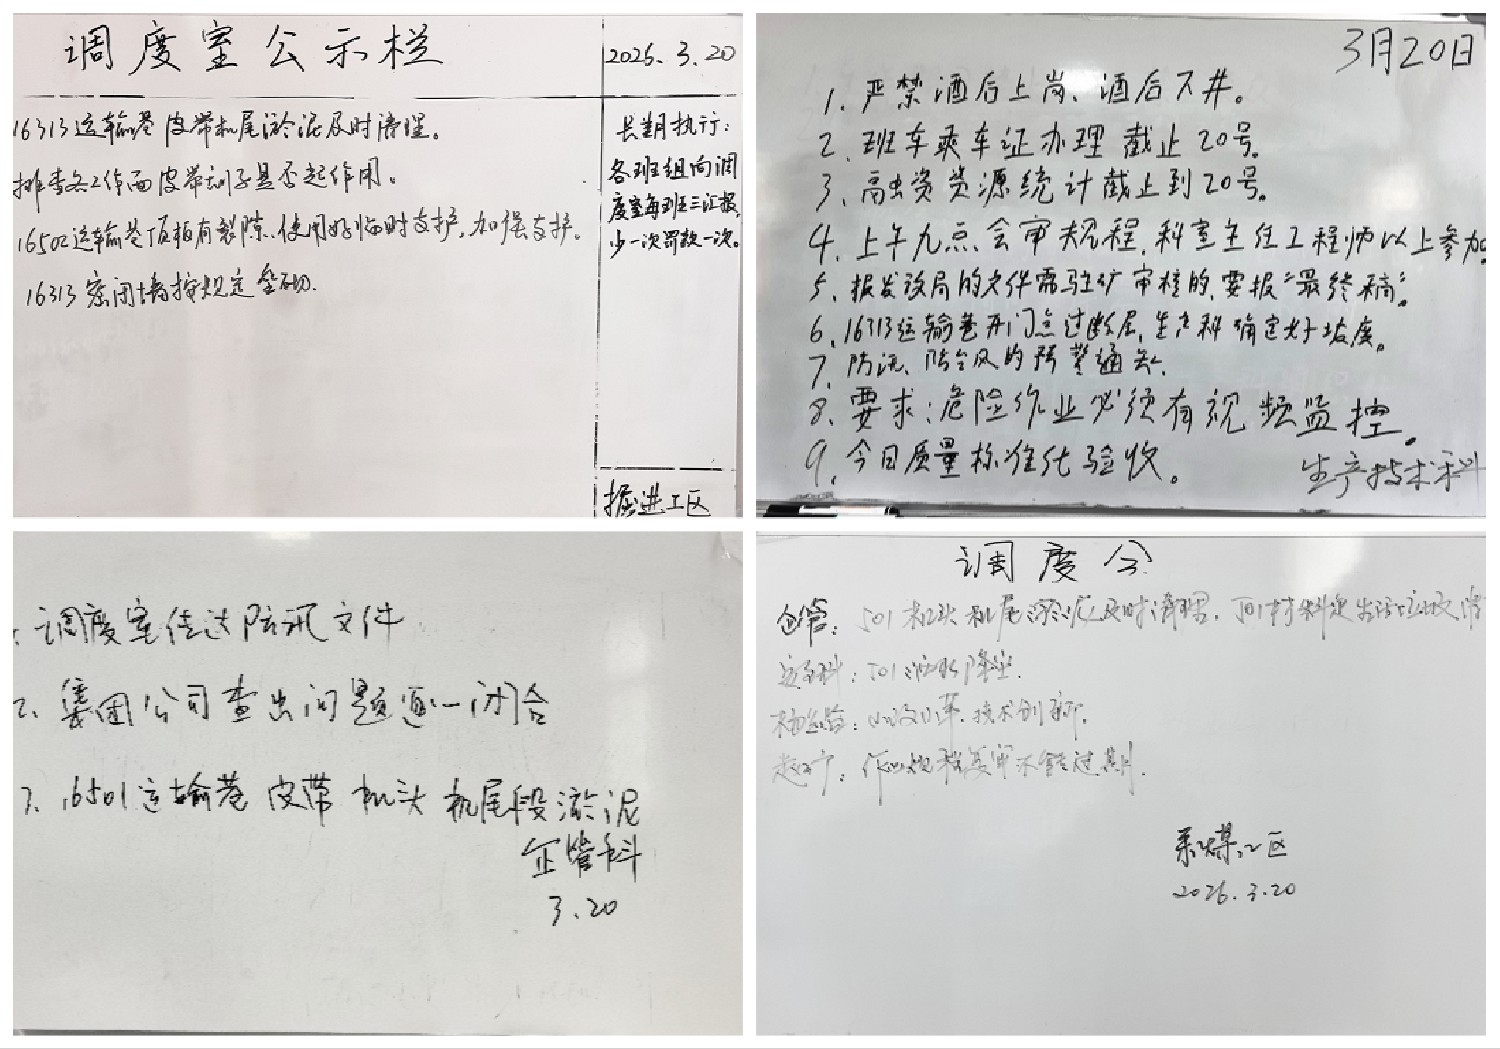 调度室公示栏
2026.3.20
16313运输巷皮带机尾淤泥及时清理。
排查各工作面皮带刮子是否起作用。
16502运输巷顶板有裂隙、使用好临时支护,加强支护。
16313密闭墙按规定垒砌.
长期执行:
各班组向调
度室每班三汇报,
少一次罚款一次。
掘进工区
3月20日
1、严禁酒后上岗、酒后下井。
2、班车乘车证办理 截止20号。
3、高出资质源统计截止到20号。
4、上午九点会审规程,科室主任工程师以上参加
5、报发改局的文件需驻矿审核的,要报“最终稿”。
6、16313运输巷开门点过断层,生产科确定好坡度。
7、防汛、防台风的预警通知.
8、要求:危险作业必须有视频监控。
9、今日质量标准化验收。
生产技术科
、调度室传达防汛文件
2、集团公司查出问题逐一闭合
3、16501运输巷皮带机头机尾段淤泥
企管科
3.20
调度会
企管:501机头机尾淤泥及时清理.501材料
:501洒水降尘.
:小改小革.技术创新.
赵矿:作业规程复审不能过期.
采煤工区
2026.3.20